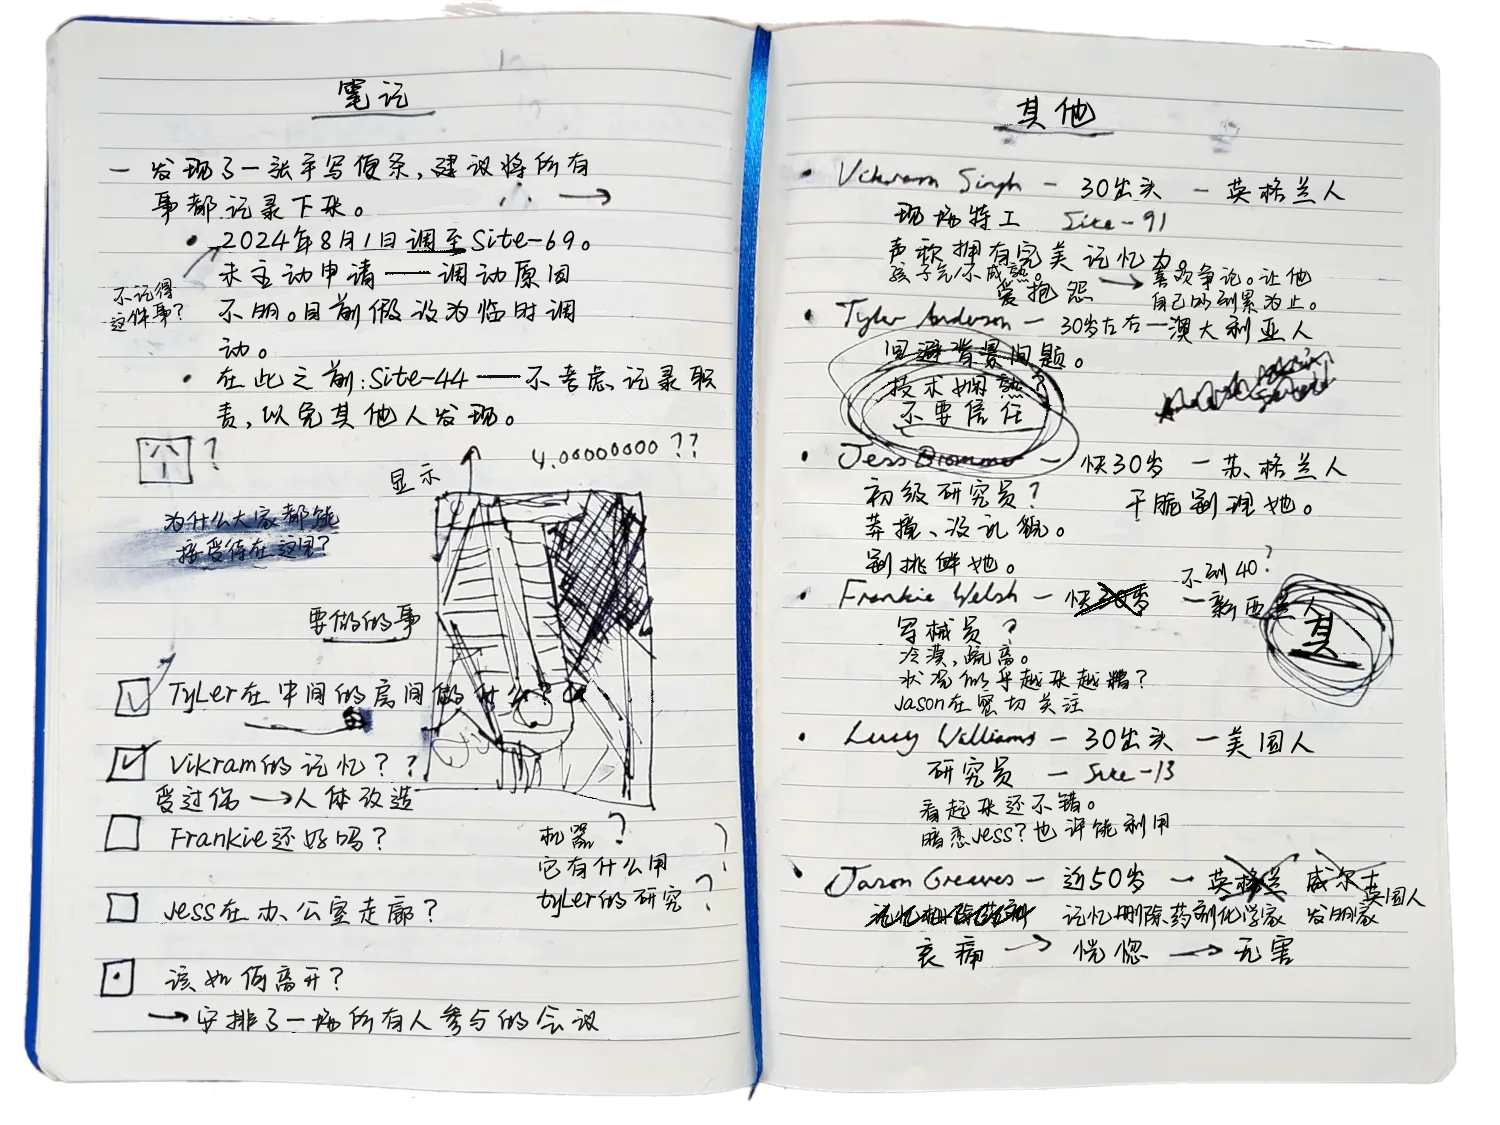 笔记
一 发现了一张手写便条,建议将所有
事都记录下来。
2024年8月1日调至Site-69。
未主动申请——调动原因
不明。目前假设为临时调
动。
不记得
这件事?
在此之前:Site-44——不考虑记录职
责,以免其他人发现。
?
显示
4.00000000??
为什么大家都能
接受待在这里?
要做的事
Tyler在中间的房间做什么?
Vikram的记忆??
受过伤→人体改造
Frankie还好吗?
Jess在办公室走廊?
该如何离开?
→安排了一场所有人参与的会议
机器?
它有什么用?
tyler的研究?
其他
Vikram Singh - 30出头 - 英格兰人
现场特工 Site-91
声称拥有完美记忆力。
孩子气/不成熟。
爱抱怨→喜欢争论。让他
自己吵到累为止。
Tyler Anderson - 30岁左右 - 澳大利亚人
回避背景问题。
技术娴熟?
不要信任
Jess - 快30岁 - 苏格兰人
初级研究员? 干脆别理她。
莽撞、没礼貌。
别挑衅她。
Frankie Welsh - 快30岁 不到40? - 新西兰人
军械员?
冷漠,疏离。
状况似乎越来越糟?
Jason在密切关注
真
Lucy Williams - 30出头 - 美国人
研究员 - Site-13
看起来还不错。
暗恋Jess?也许能利用
Jason Greaves - 近50岁 - 英格兰 威尔士
英国人
记忆删除药剂 记忆删除药剂化学家 发明家
哀痛→恍惚→无害